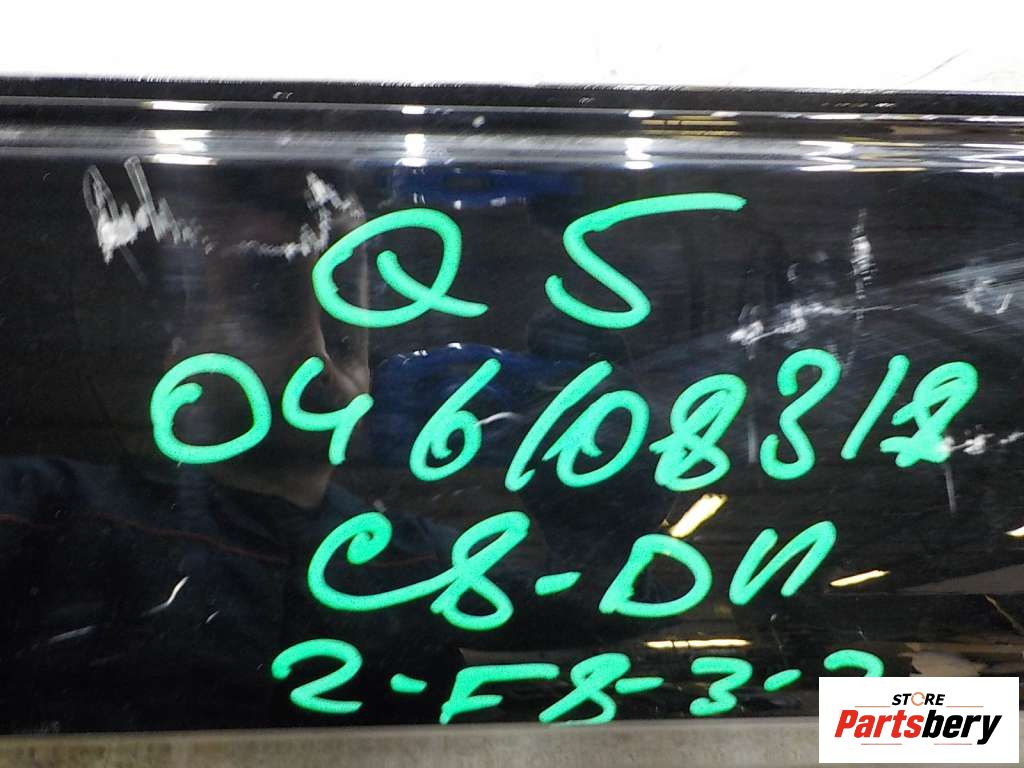 Q5
046108318
C8-DИ
2-F8-3-2
STORE
Partsbery